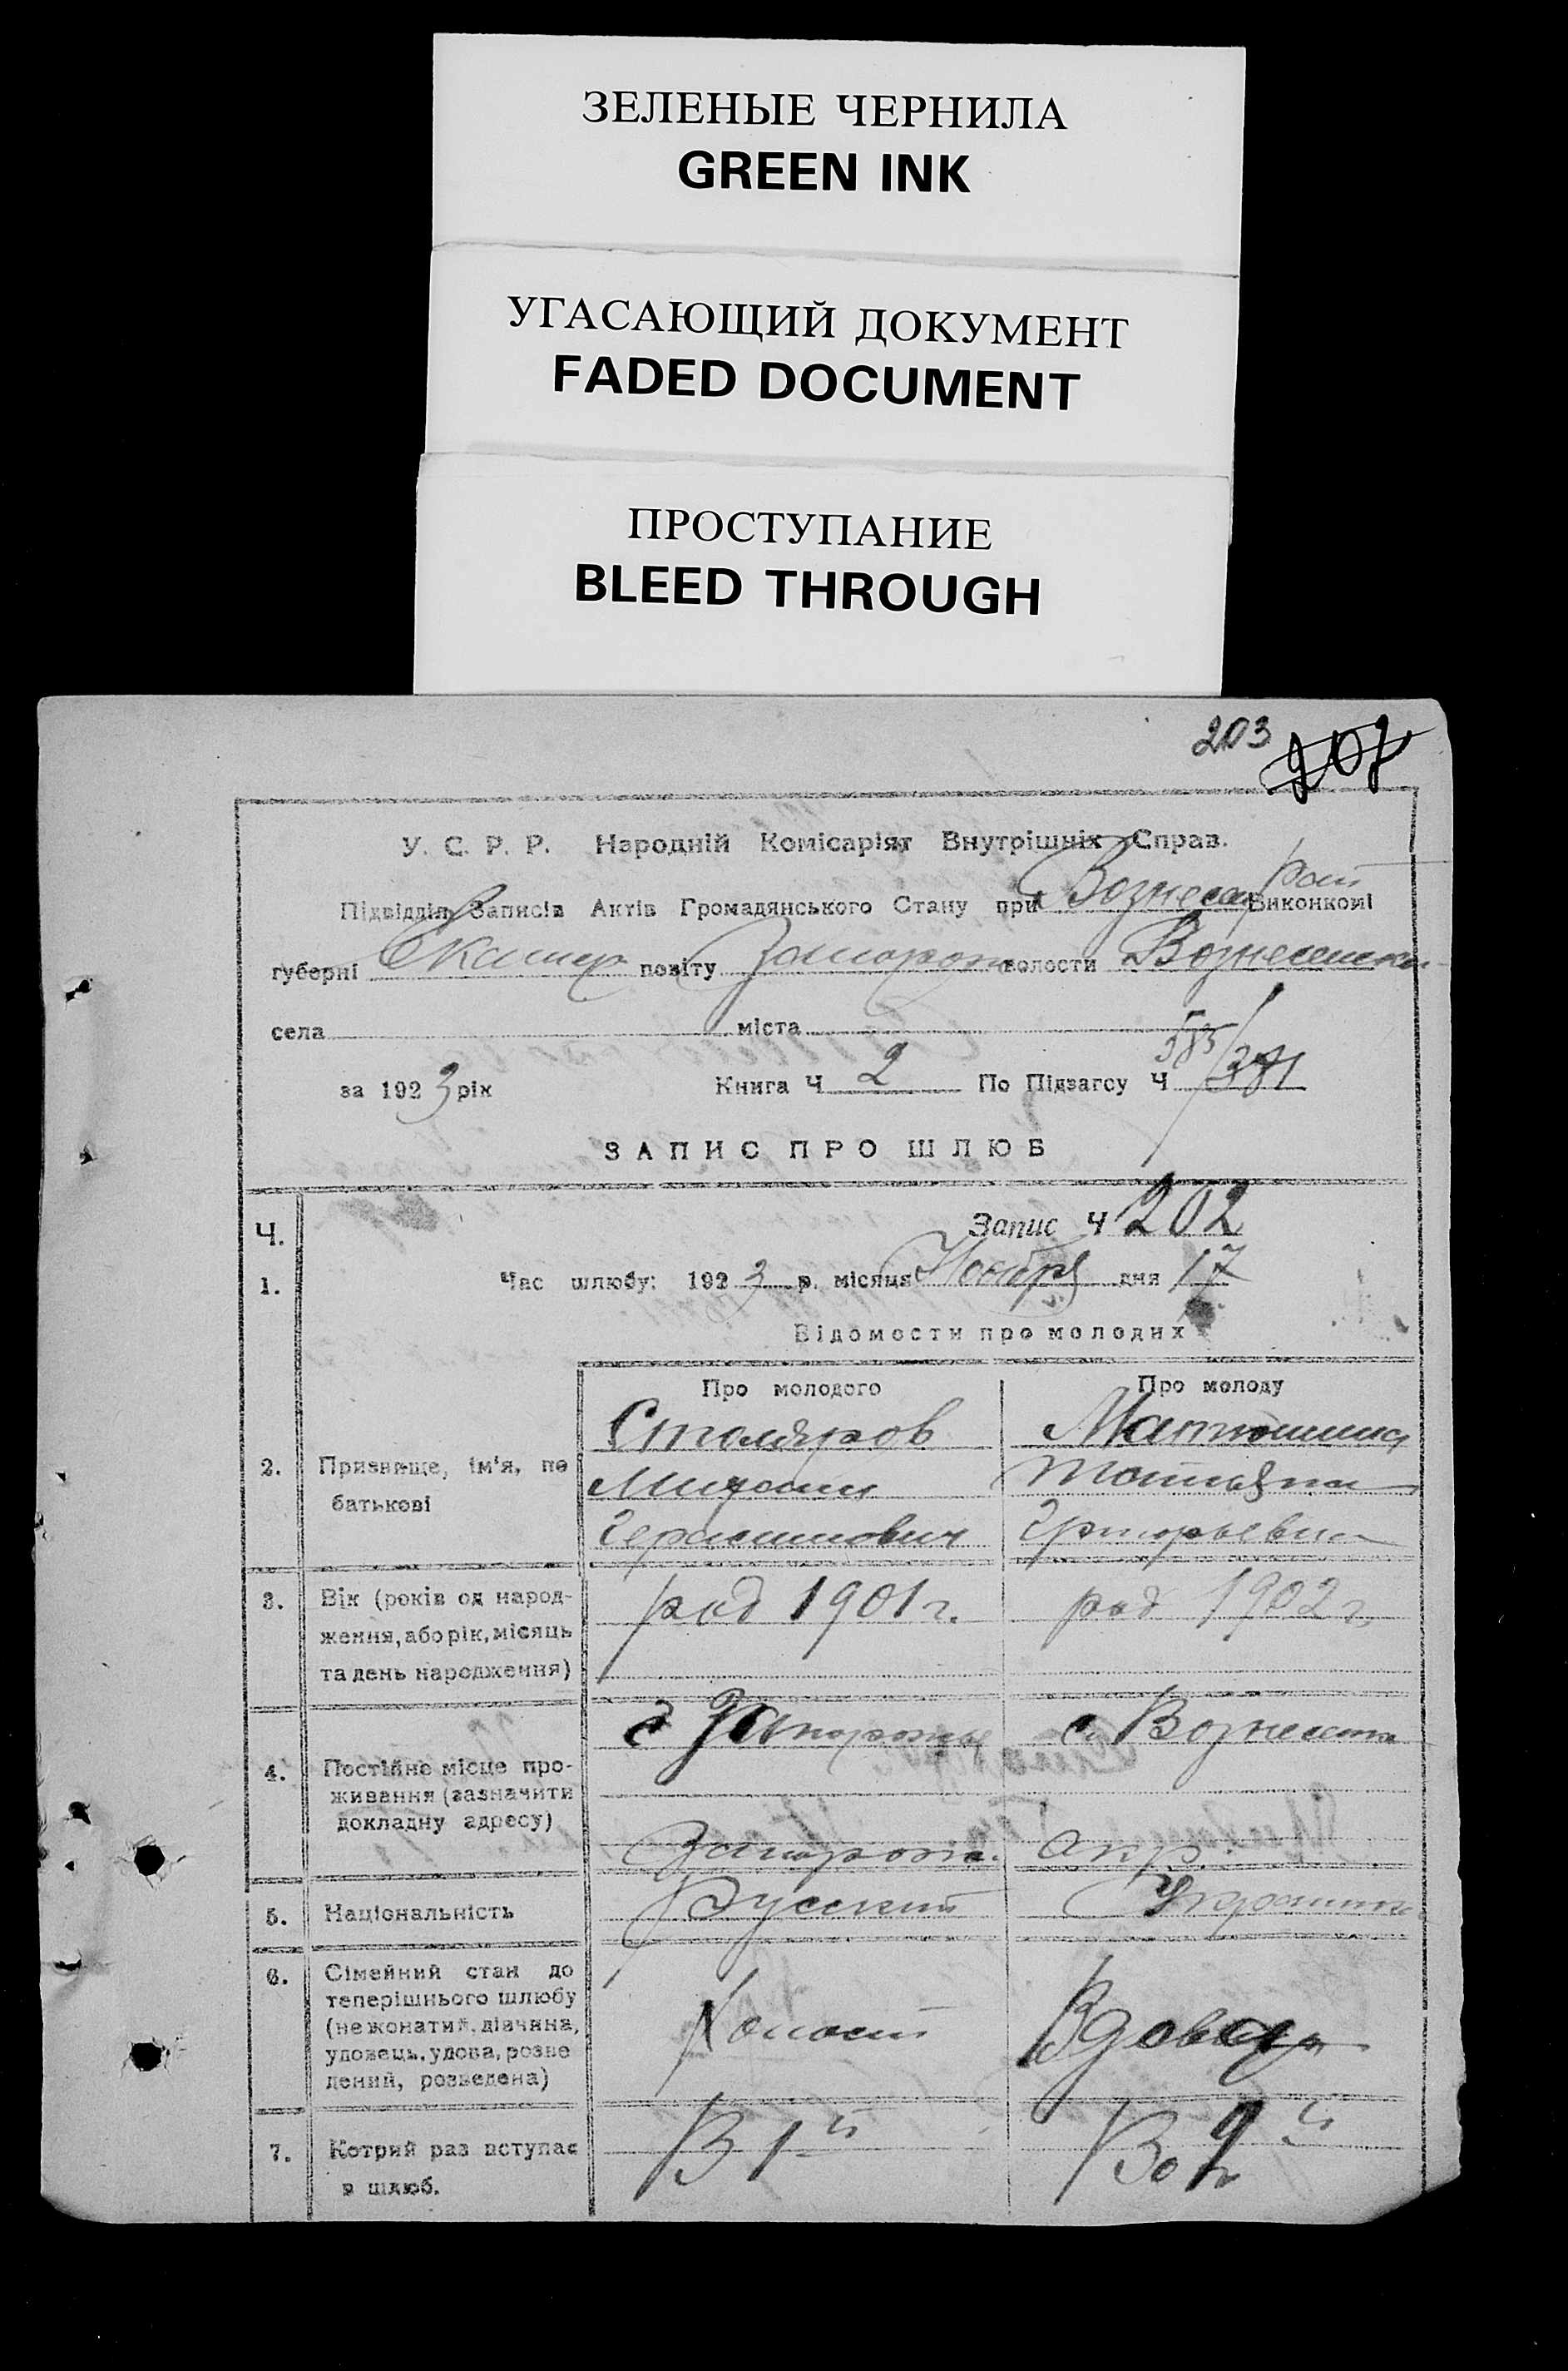 ЗЕЛЕНЫЕ ЧЕРНИЛА
GREEN INK
УГАСАЮЩИЙ ДОКУМЕНТ
FADED DOCUMENT
ПРОСТУПАНИЕ
BLEED THROUGH
203 207
У. С. Р. Р. Народній Комісаріят Внутрішніх Справ.
Підвідділ Записів Актів Громадянського Стану при Вознесен Виконкомі
губерні Екатер повіту Запорож волости Вознесенска
села міста
583/381
за 1923 рік Книга Ч 2 По Підзагсу Ч
ЗАПИС ПРО ШЛЮБ
Ч. Запис Ч 202
1. Час шлюбу: 1923 р. місяця Ноября дня 17
Відомости про молодих
Про молодого Про молоду
Столяров Матюшина
2. Призвіще, ім'я, по Михаил Татьяна
батькові
Герасимович Григорьевна
3. Вік (років од народ- род 1901 г. род 1902 г.
ження, або рік, місяць
та день народження)
Запорожье с. Вознесенка
4. Постійне місце про-
живання (зазначити
докладну адресу)
Запорожск. окр.
5. Національність Русский Украинка
6. Сімейний стан до
теперішнього шлюбу
(нежонатий, дівчина, Холост Вдова
удовець, удова, розве
дений, розведена)
7. Котрий раз вступає В 1й Во 2й
в шлюб.